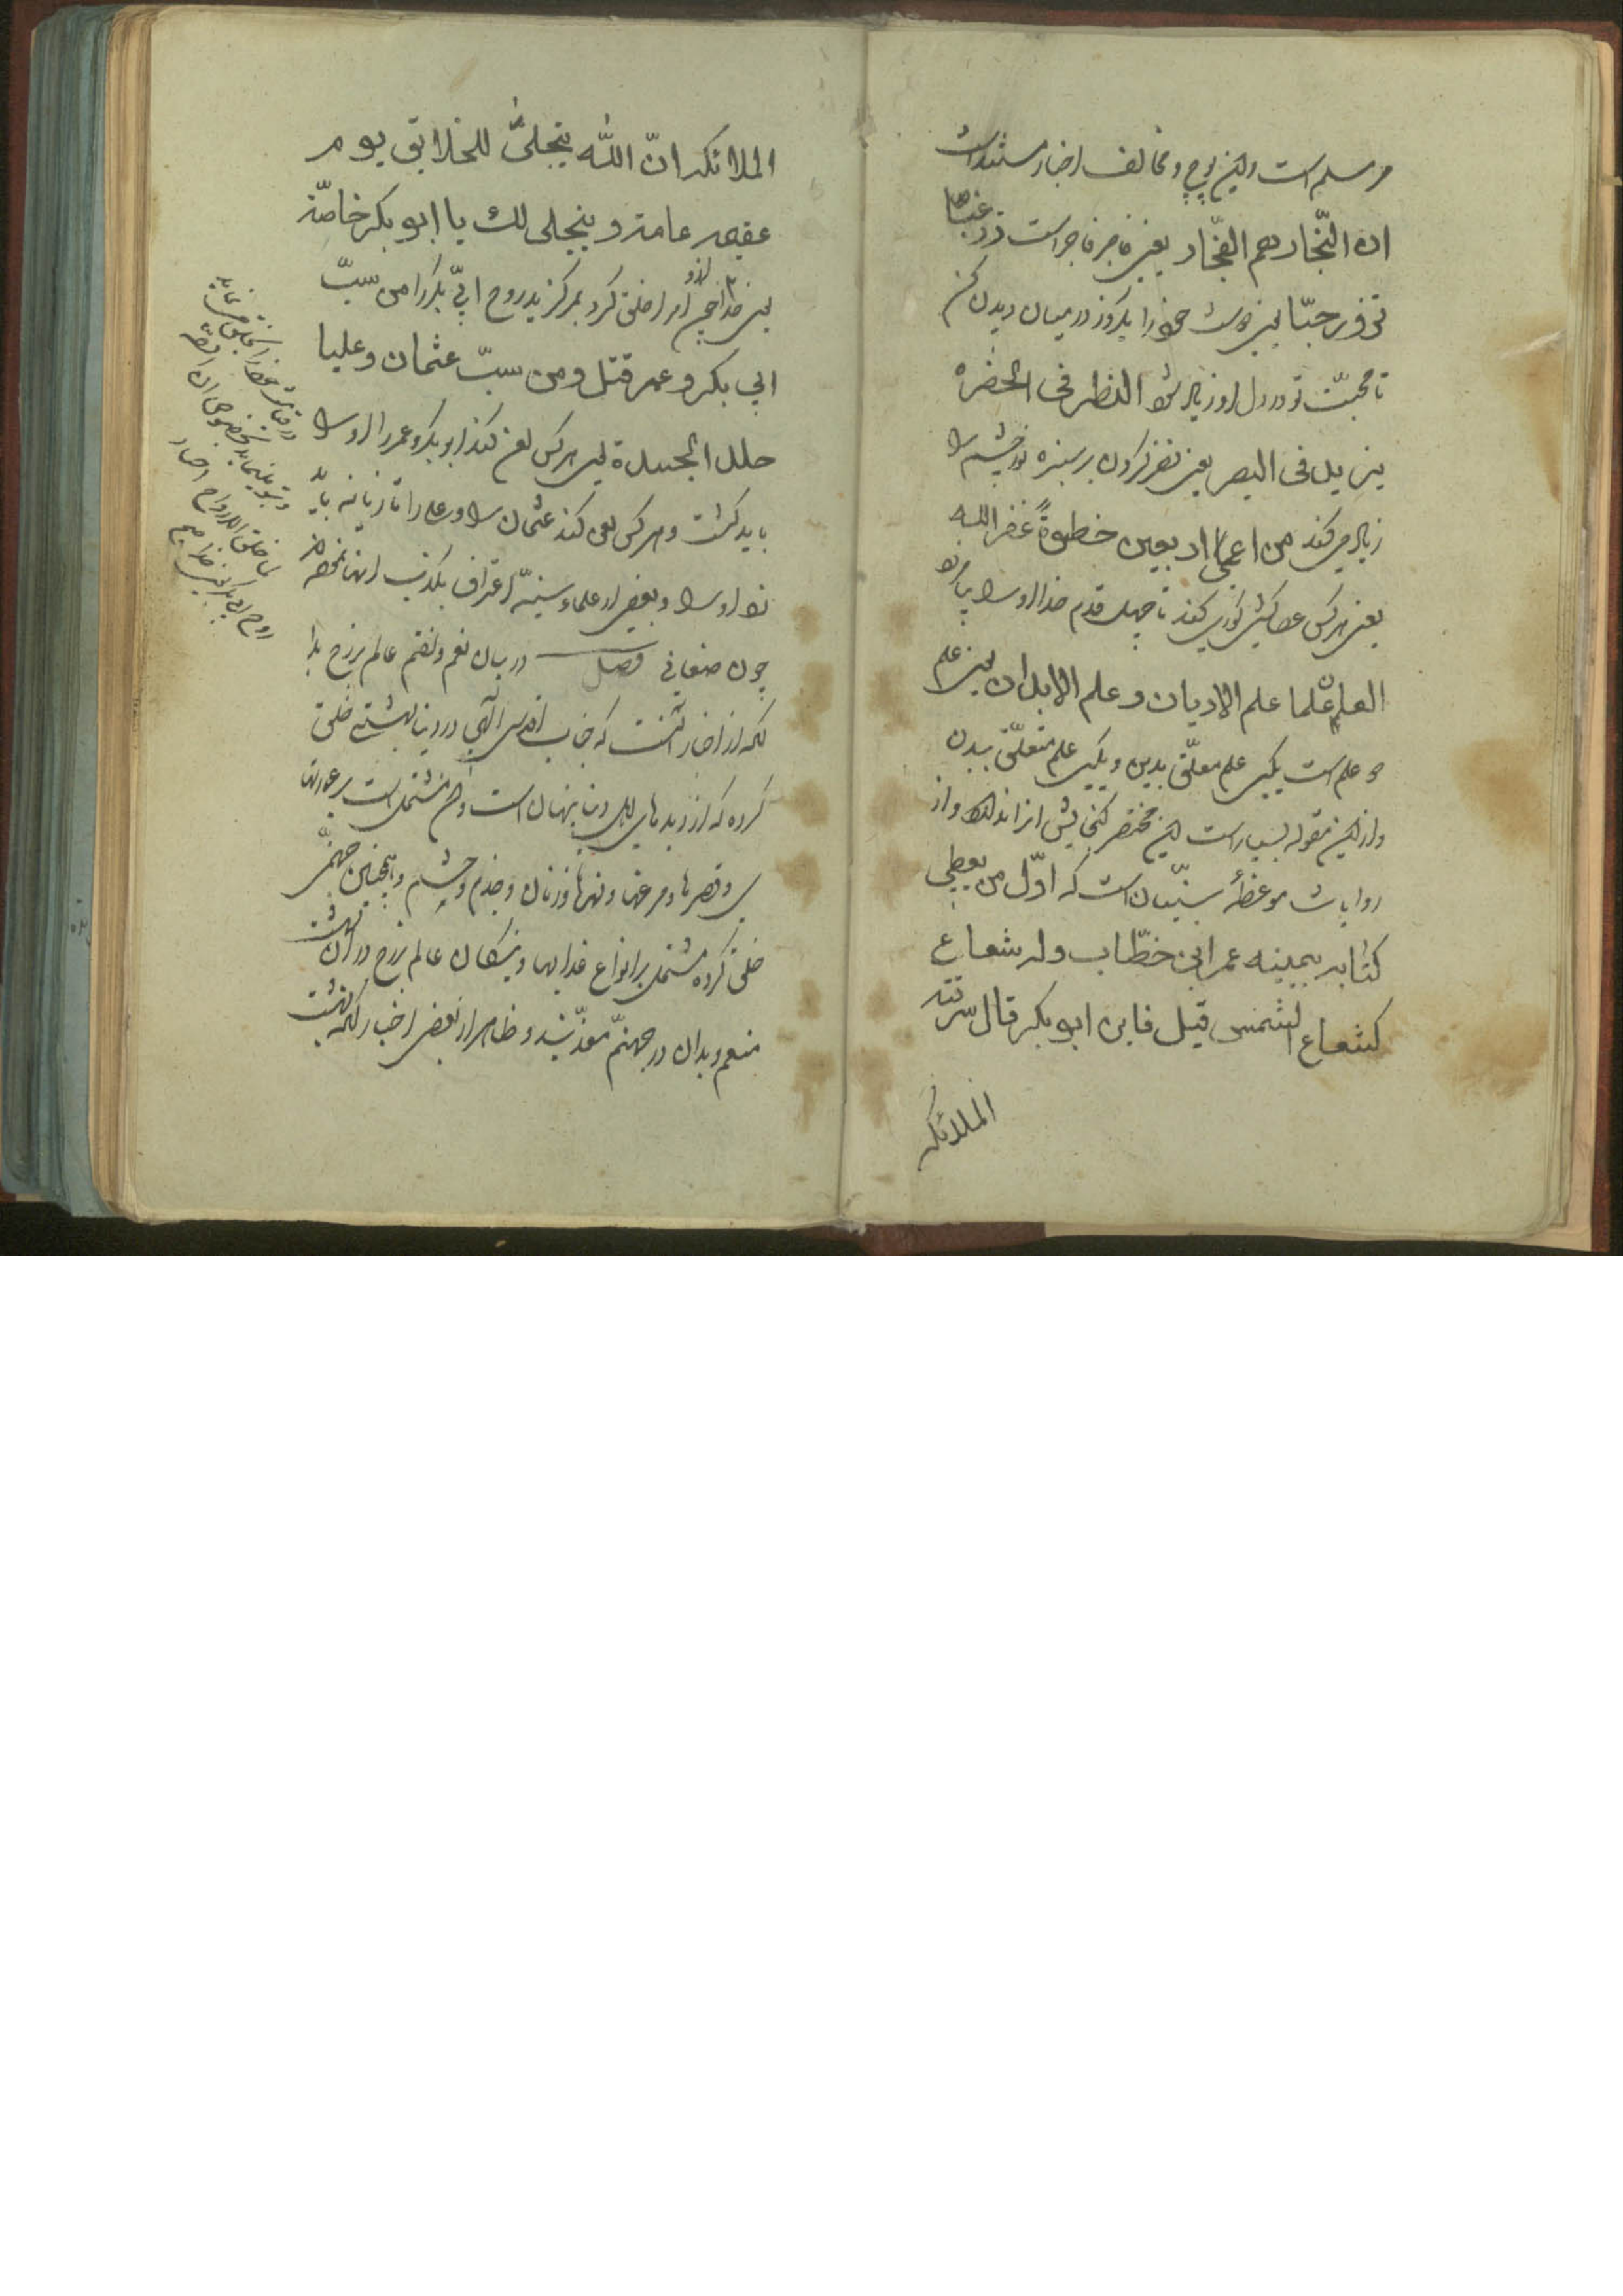 مسلم است و این پوچ و مخالف اخبار مستند است
ان التّجار هم الفجّار یعنی تاجر فاجر است زرغبّا
تزدد حبّا یعنی دوست خود را یکروز در میان دیدن کن
تا محبّت تو در دل او زیاد شود النظر فی الخضره
یزید فی البصر یعنی نظر کردن بر سبزه نور چشم را
زیاد میکند من اعمی اربعین خطوةً غفر الله
یعنی هر کس عصا کشی کوری کند تا چهل قدم خدا او را بیامرزد
العلم علمان علم الادیان و علم الابدان یعنی علم
دو علم است یکی علم متعلّق بدین و یکی علم متعلّق ببدن
و از این مقوله بسیار است این مختصر گنجایش و از
روایات موضوعهٔ سنّیان است که اوّل من یعطی
کتابه بیمینه عمر ابن خطّاب وله شعاع
کشعاع الشمس قیل فاین ابو بکر قال سرقته
الملائکه
الملائکه انّ الله یتجلّی للخلائق یوم
القیمه عامة و یتجلی لک یا ابو بکر خاصّة
یعنی خدا چون ارواح را خلق کرد برگزید روح ابی بکر را من سبّ
ابی بکر و عمر قتل و من سبّ عثمان و علیا
جلد الجلدة یعنی هر کس لعن کند ابو بکر و عمر را او را
باید کشت و هر کس لعن کند عثمان را و علی را تازیانه باید
زد او را و بعضی از علماء سنیّه اعتراف بکذب اینها نموده‌اند
چون صنعانی فصل در بیان نعم و نقم عالم برزخ بدا
نکه از اخبار آنست که جناب اقدس الهی در دنیا بهشتی خلق
کرده که از دیده‌های اهل دنیا پنهان است و آن مشتمل است بر حوریها
ی و قصرها و مرغها و نهرها و زنان و خدم و حشم و همچنین جهنّمی
خلق کرده مشتمل بر انواع عذابها و نیکان عالم برزخ در آن بهشت
متنعم و بدان در جهنّم معذّبند و ظاهر از بعضی اخبار آنکه بهشت
روح ابی بکر یعنی خدا چون